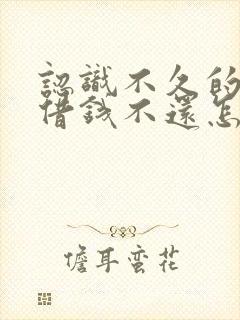 認識不久的
借錢不還怎
儋耳蛮花